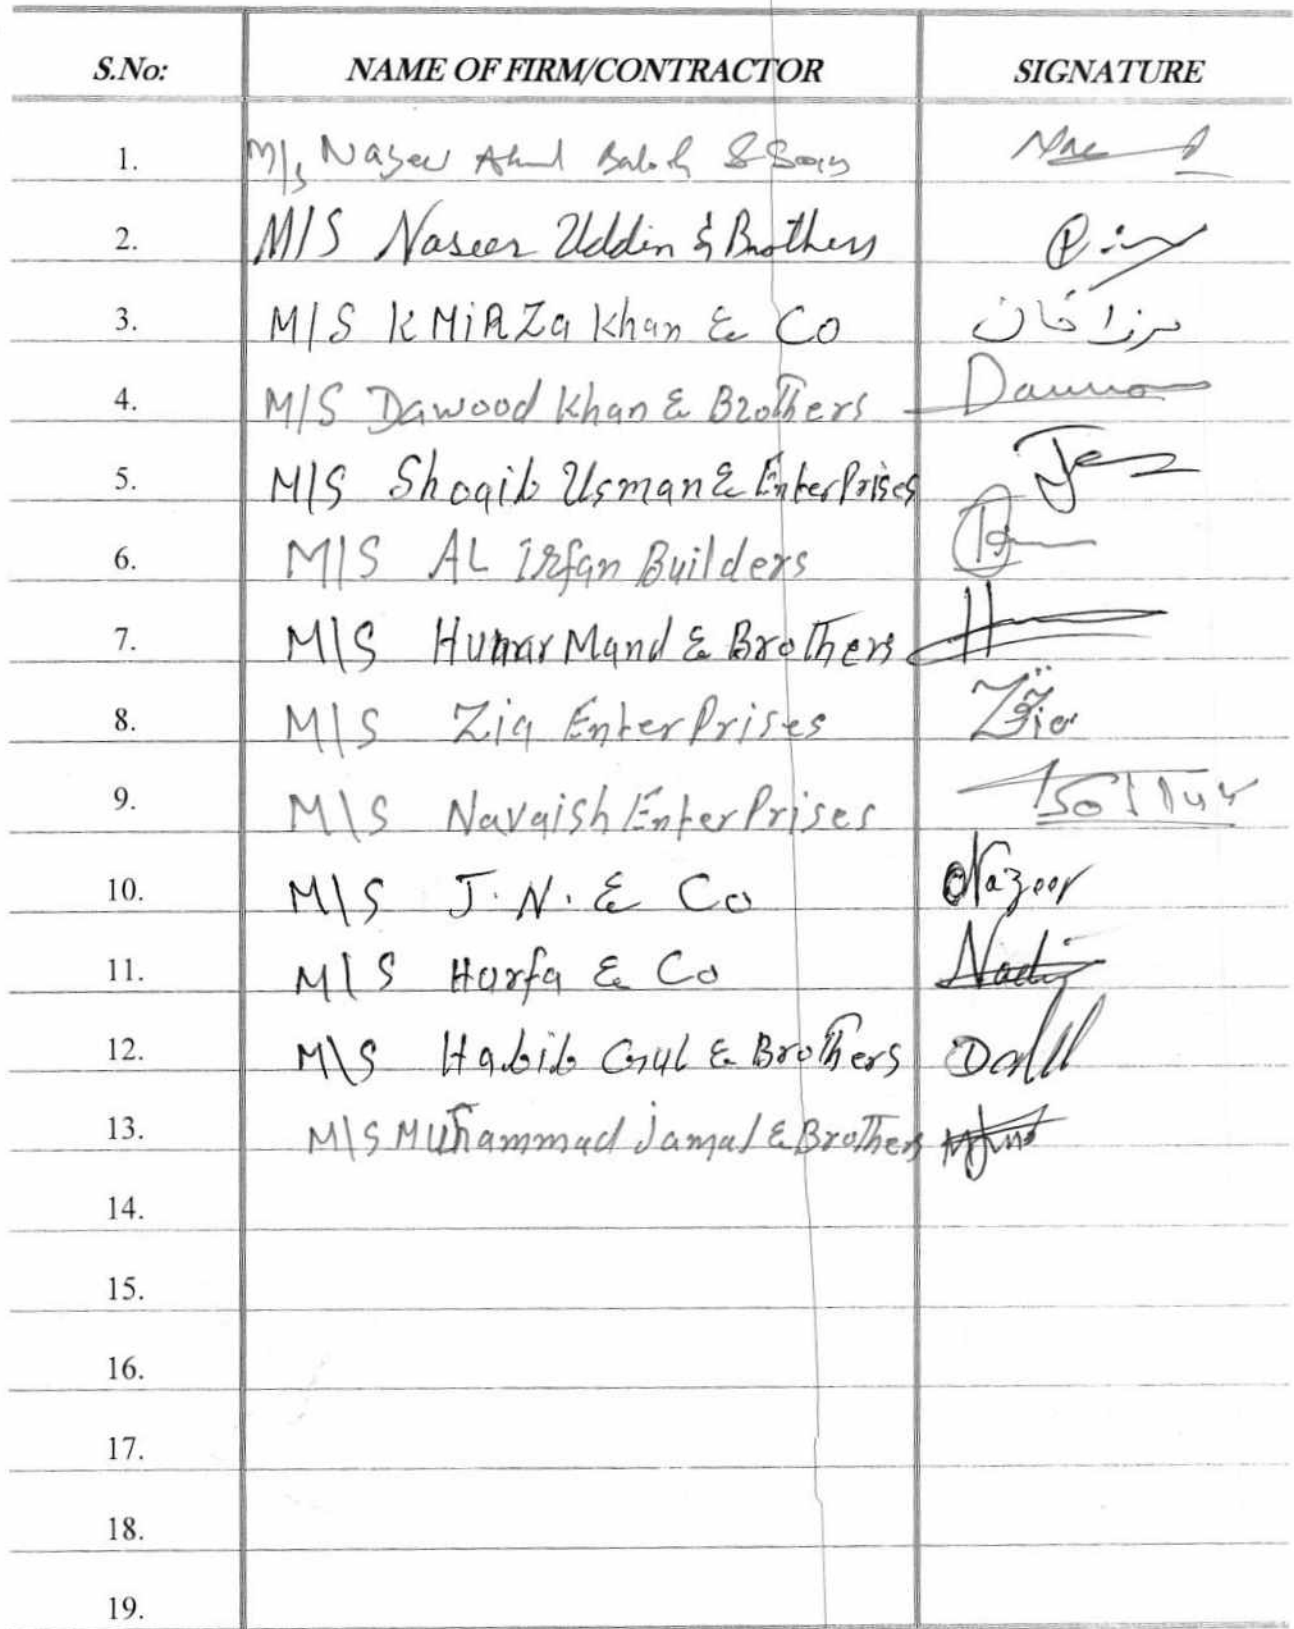 S.No: NAME OF FIRM/CONTRACTOR SIGNATURE
1. M/s Naseer Ahmd & Sons
2. M/S Naseer Uddin & Brothers
3. M/S K MiRZa Khan & Co مرزا خان
4. M/S Dawood Khan & Brothers
5. M/S Shoaib Usman & EnterPrises
6. M/S AL Irfan Builders
7. M/S Hunar Mand & Brothers
8. M/S Zia EnterPrises Zia
9. M/S Navaish EnterPrises
10. M/S J.N. & Co Nazeer
11. M/S Harfa & Co
12. M/S Habib Gul & Brothers
13. M/S Muhammad Jamal & Brothers
14.
15.
16.
17.
18.
19.